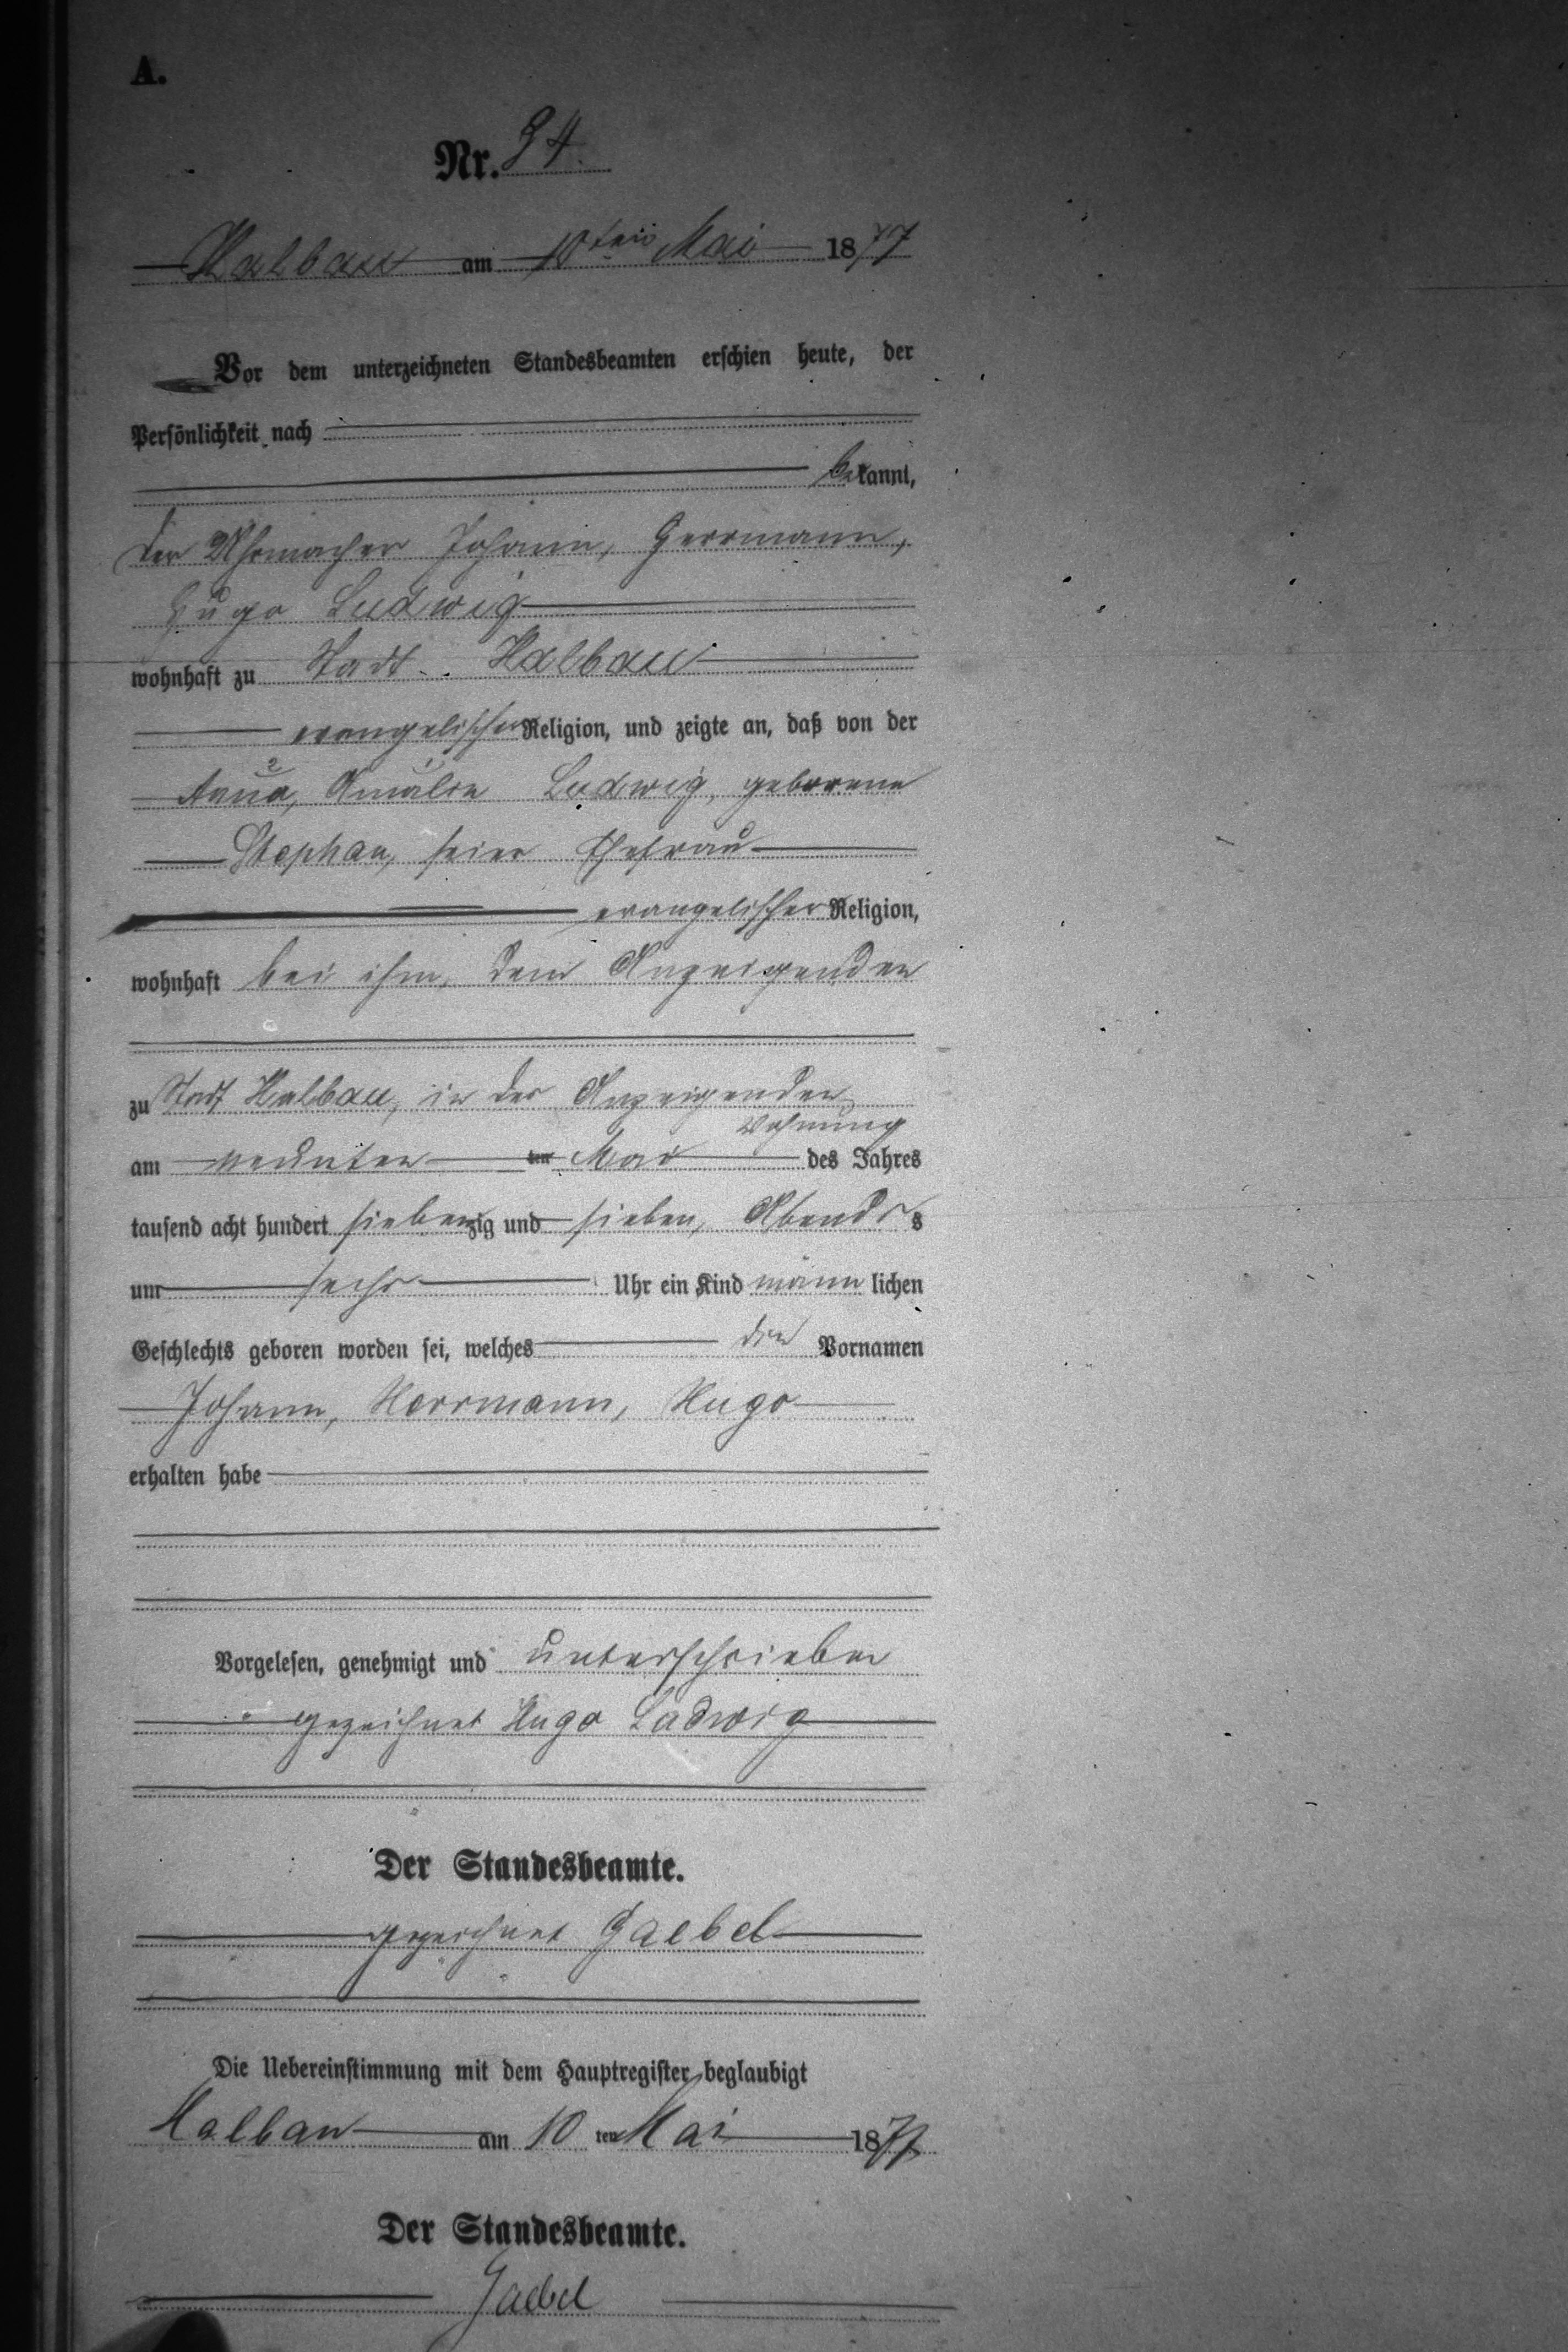 A.
Nr. 94.
Halbau am 10ten Mai 1877
Vor dem unterzeichneten Standesbeamten erschien heute, der
Persönlichkeit nach
bekannt,
der Uhrmacher Johann, Herrmann,
Hugo Ludwig
wohnhaft zu Stadt Halbau
evangelischer Religion, und zeigte an, daß von der
Anna, Amalie Ludwig, geborene
Stephan, seiner Ehefrau
evangelischer Religion,
wohnhaft bei ihm, dem Anzeigenden
zu Stadt Halbau, in des Anzeigenden
Wohnung
am neunten ten Mai des Jahres
tausend acht hundert siebenzig und sieben, Abends s
um sechs Uhr ein Kind männ lichen
Geschlechts geboren worden sei, welches die Vornamen
Johann, Herrmann, Hugo
erhalten habe
Vorgelesen, genehmigt und unterschrieben
gezeichnet Hugo Ludwig
Der Standesbeamte.
gezeichnet Gaebel
Die Uebereinstimmung mit dem Hauptregister beglaubigt
Halbau am 10 ten Mai 1877
Der Standesbeamte.
Gaebel